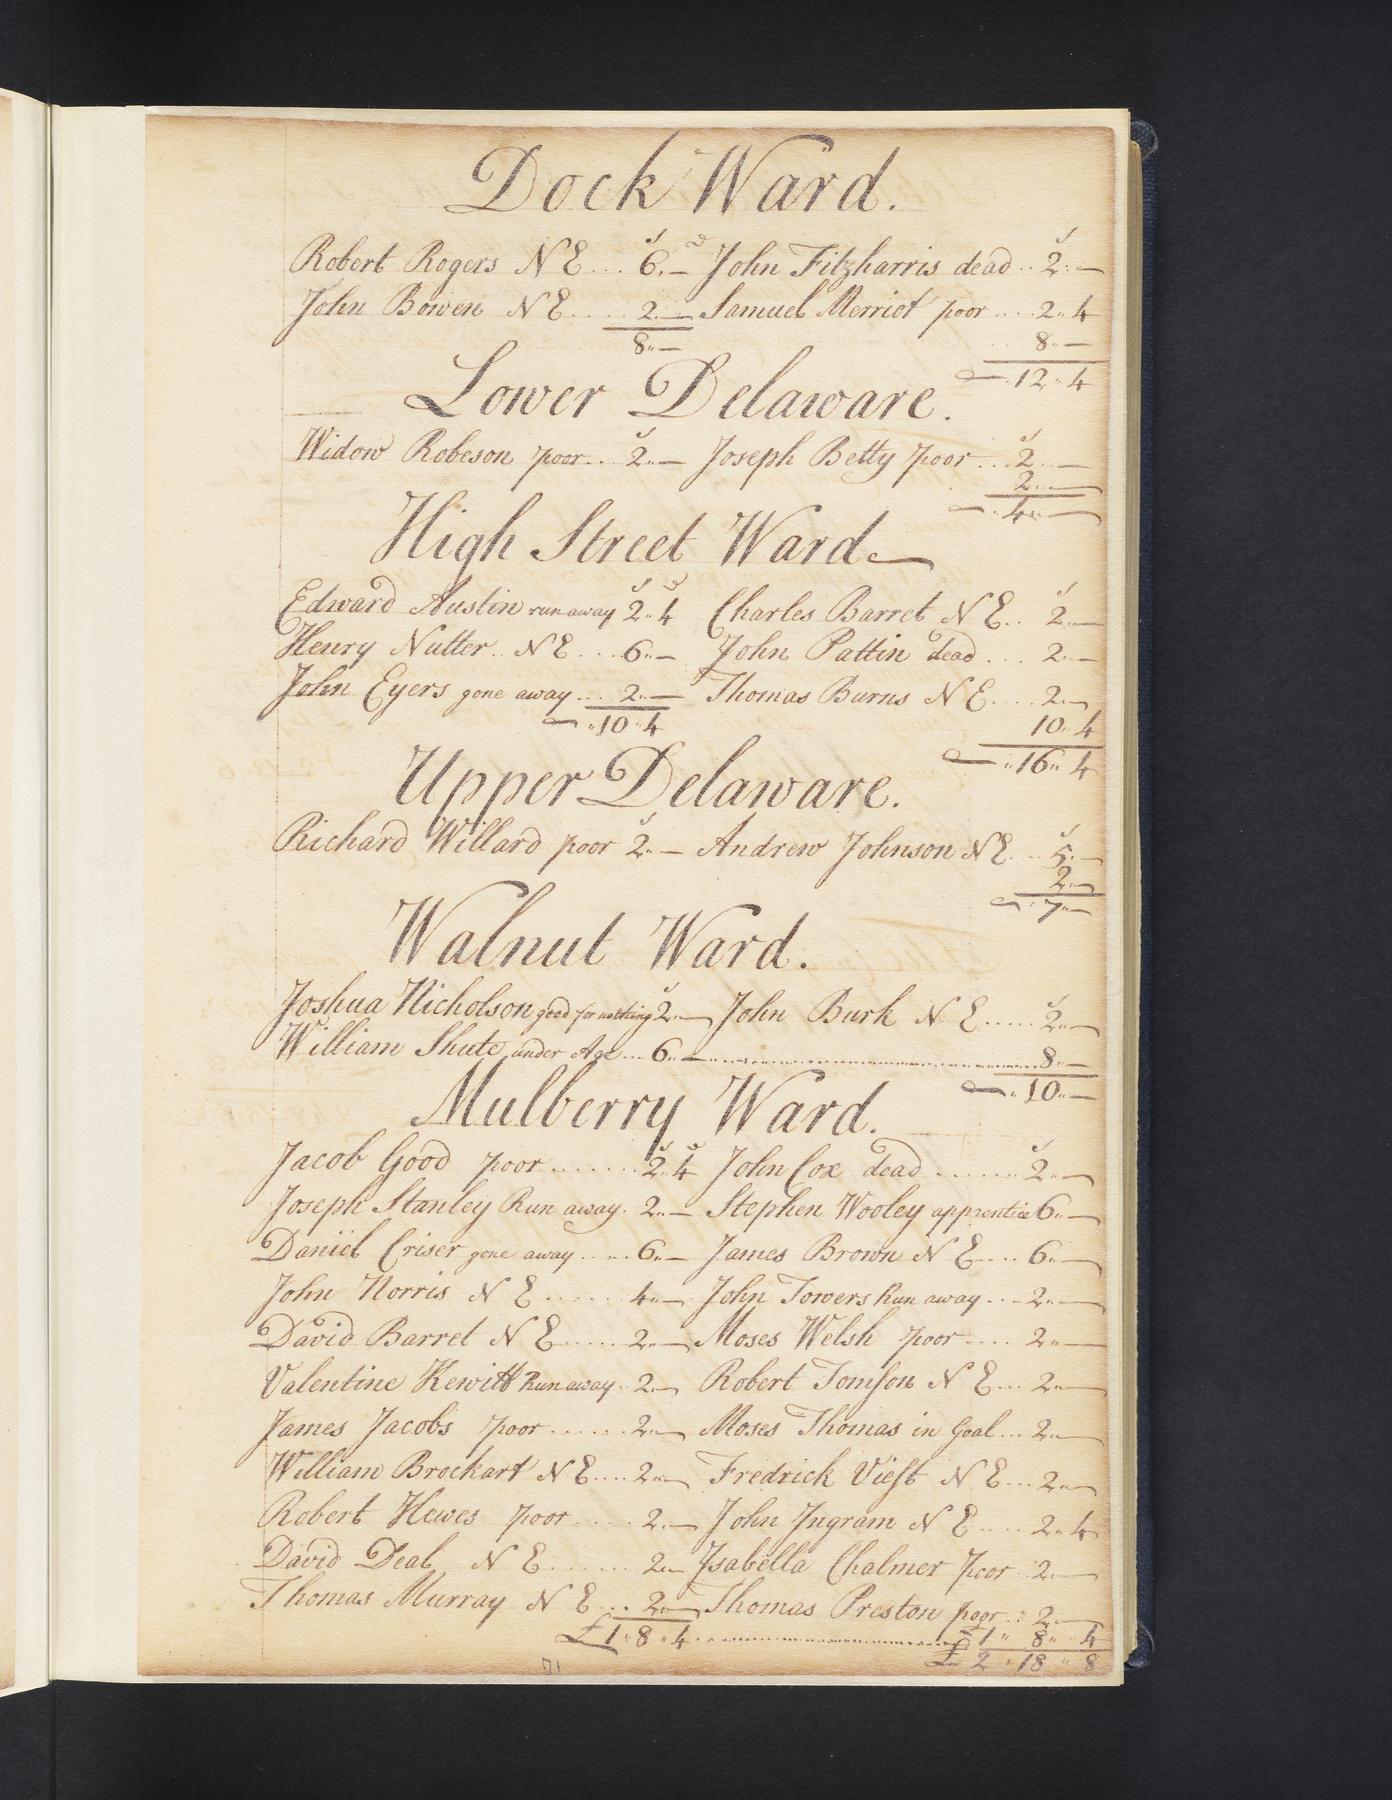 Dock Ward.
s d s
Robert Rogers N E .... 6,, — John Fitzharris dead .. 2,, —
John Bowen N E ..... 2,, — Samuel Merriot poor .... 2,, 4
8,, — 8,, —
12,, 4
Lower Delaware.
s s
Widow Robeson poor .. 2,, — Joseph Betty poor ... 2,, —
2,, —
4,, —
High Street Ward
s d s
Edward Austin run away 2,, 4 Charles Barret N E .. 2,, —
Henry Nutter .. N E ... 6,, — John Pattin dead ... 2,, —
John Eyers gone away ... 2,, — Thomas Burns N E .... 2,, —
,, 10,, 4 10,, 4
,, 16,, 4
Upper Delaware.
s s
Richard Willard poor 2,, — Andrew Johnson N E ... 5,, —
2,, —
,, 7,, —
Walnut Ward.
s s
Joshua Nicholson good for nothing 2,, — John Burk N E ..... 2,, —
William Shute under Age ... 6,, — 8,, —
,, 10,, —
Mulberry Ward.
s d s
Jacob Good poor ....... 2,, 4 John Cox dead ...... 2,, —
Joseph Stanley Run away . 2,, — Stephen Wooley apprentice 6,, —
Daniel Criser gone away .... 6,, — James Brown N E .... 6,, —
John Norris N E ...... 4,, — John Towers Run away ... 2,, —
David Barret N E ..... 2,, — Moses Welsh poor .... 2,, —
Valentine Kewitt Run away .. 2,, — Robert Tomson N E ... 2,, —
James Jacobs poor ...... 2,, — Moses Thomas in Goal ... 2,, —
William Brockart N E .... 2,, — Fredrick Viest N E ... 2,, —
Robert Hewes poor .... 2,, — John Ingram N E .... 2,, 4
David Deal N E ....... 2,, — Isabella Chalmer Poor .. 2,, —
Thomas Murray N E .. 2,, — Thomas Preston poor .. 2,, —
£ 1,, 8,, 4 £ 1,, 8,, 4
£ 2,, 18,, 8
71